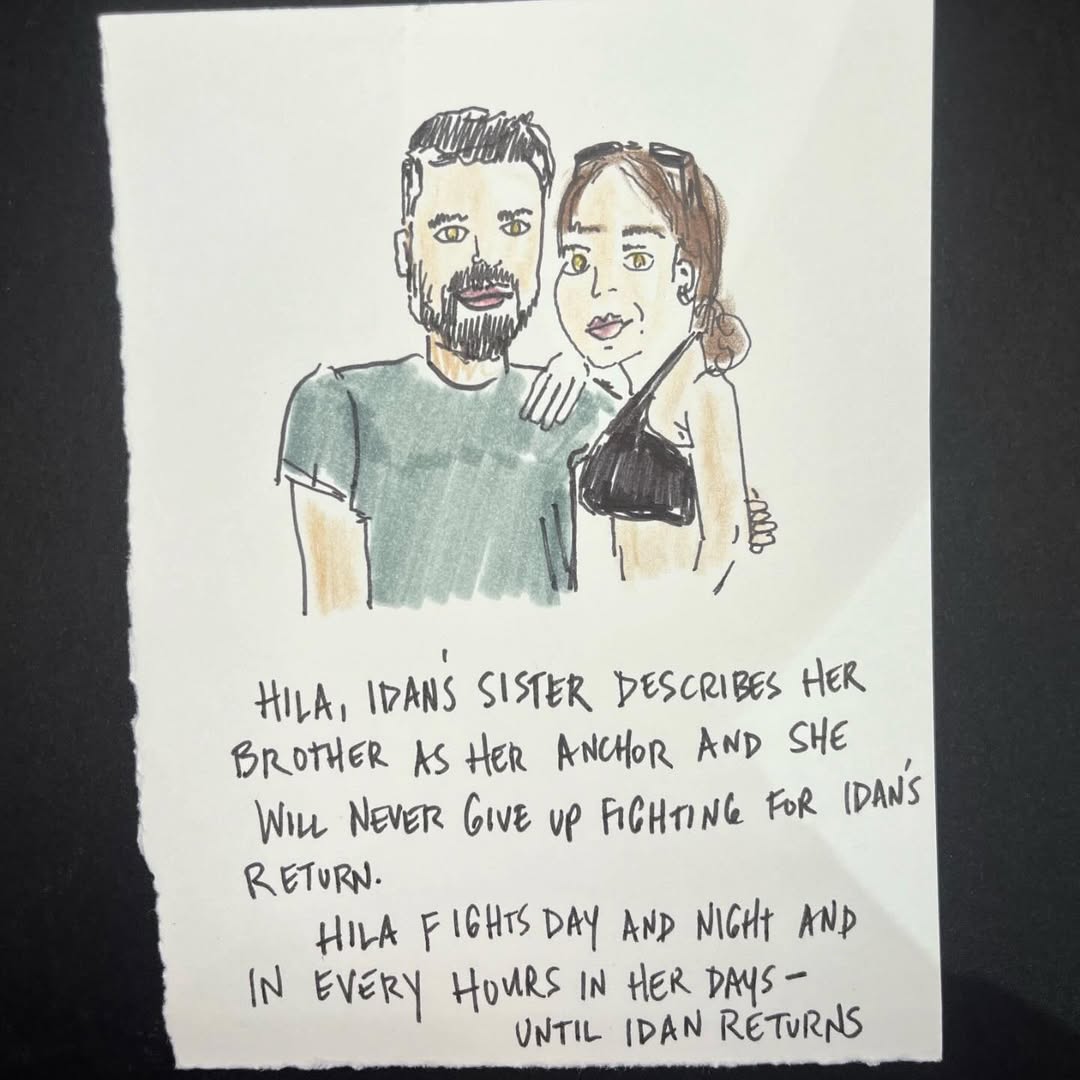 HILA, IDAN'S SISTER DESCRIBES HER
BROTHER AS HER ANCHOR AND SHE
WILL NEVER GIVE UP FIGHTING FOR IDAN'S
RETURN.
HILA FIGHTS DAY AND NIGHT AND
IN EVERY HOURS IN HER DAYS-
UNTIL IDAN RETURNS